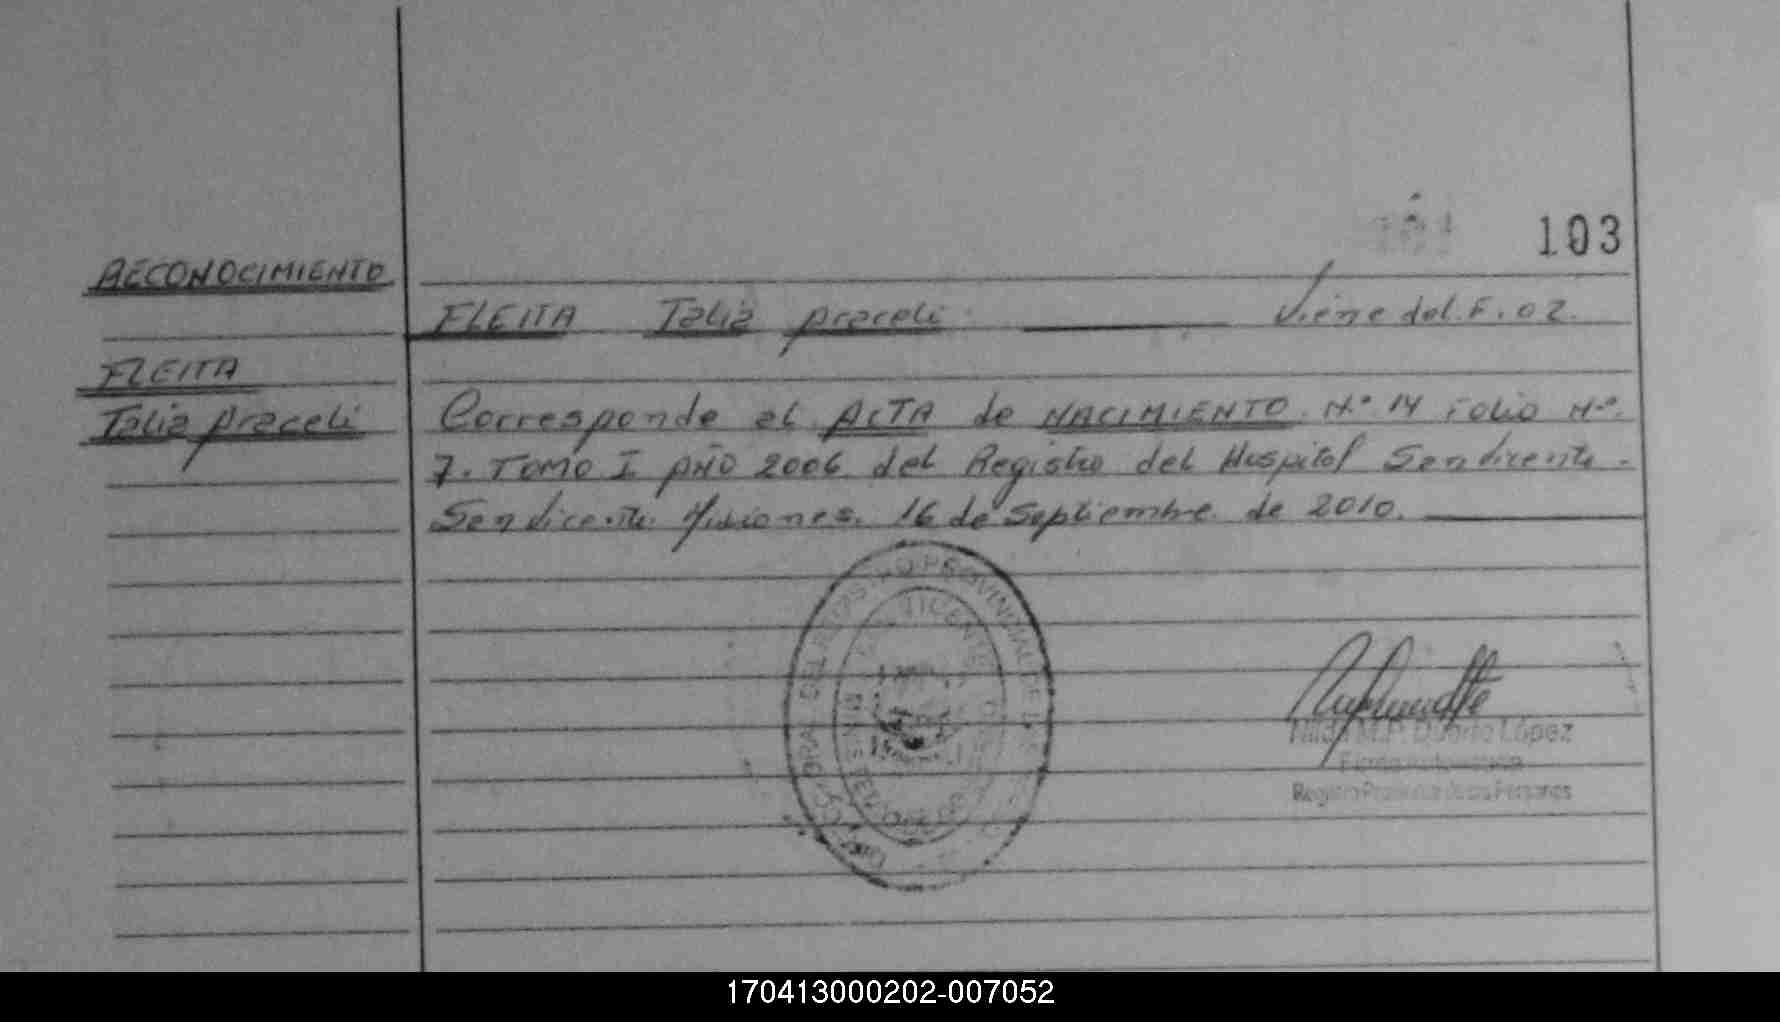 103
RECONOCIMIENTO
FLEITA Talia Araceli. Viene del F. 02.
FLEITA
Talia Araceli
Corresponde al ACTA de NACIMIENTO. N° 14 Folio N°.
7. TOMO I AÑO 2006 del Registro del Hospital San Vicente.
San Vicente. Misiones. 16 de Septiembre de 2010.
REGISTRO PROVINCIAL DE
VICENTE
Nilda M. Duarte López
Registro Provincial de las Personas
170413000202-007052